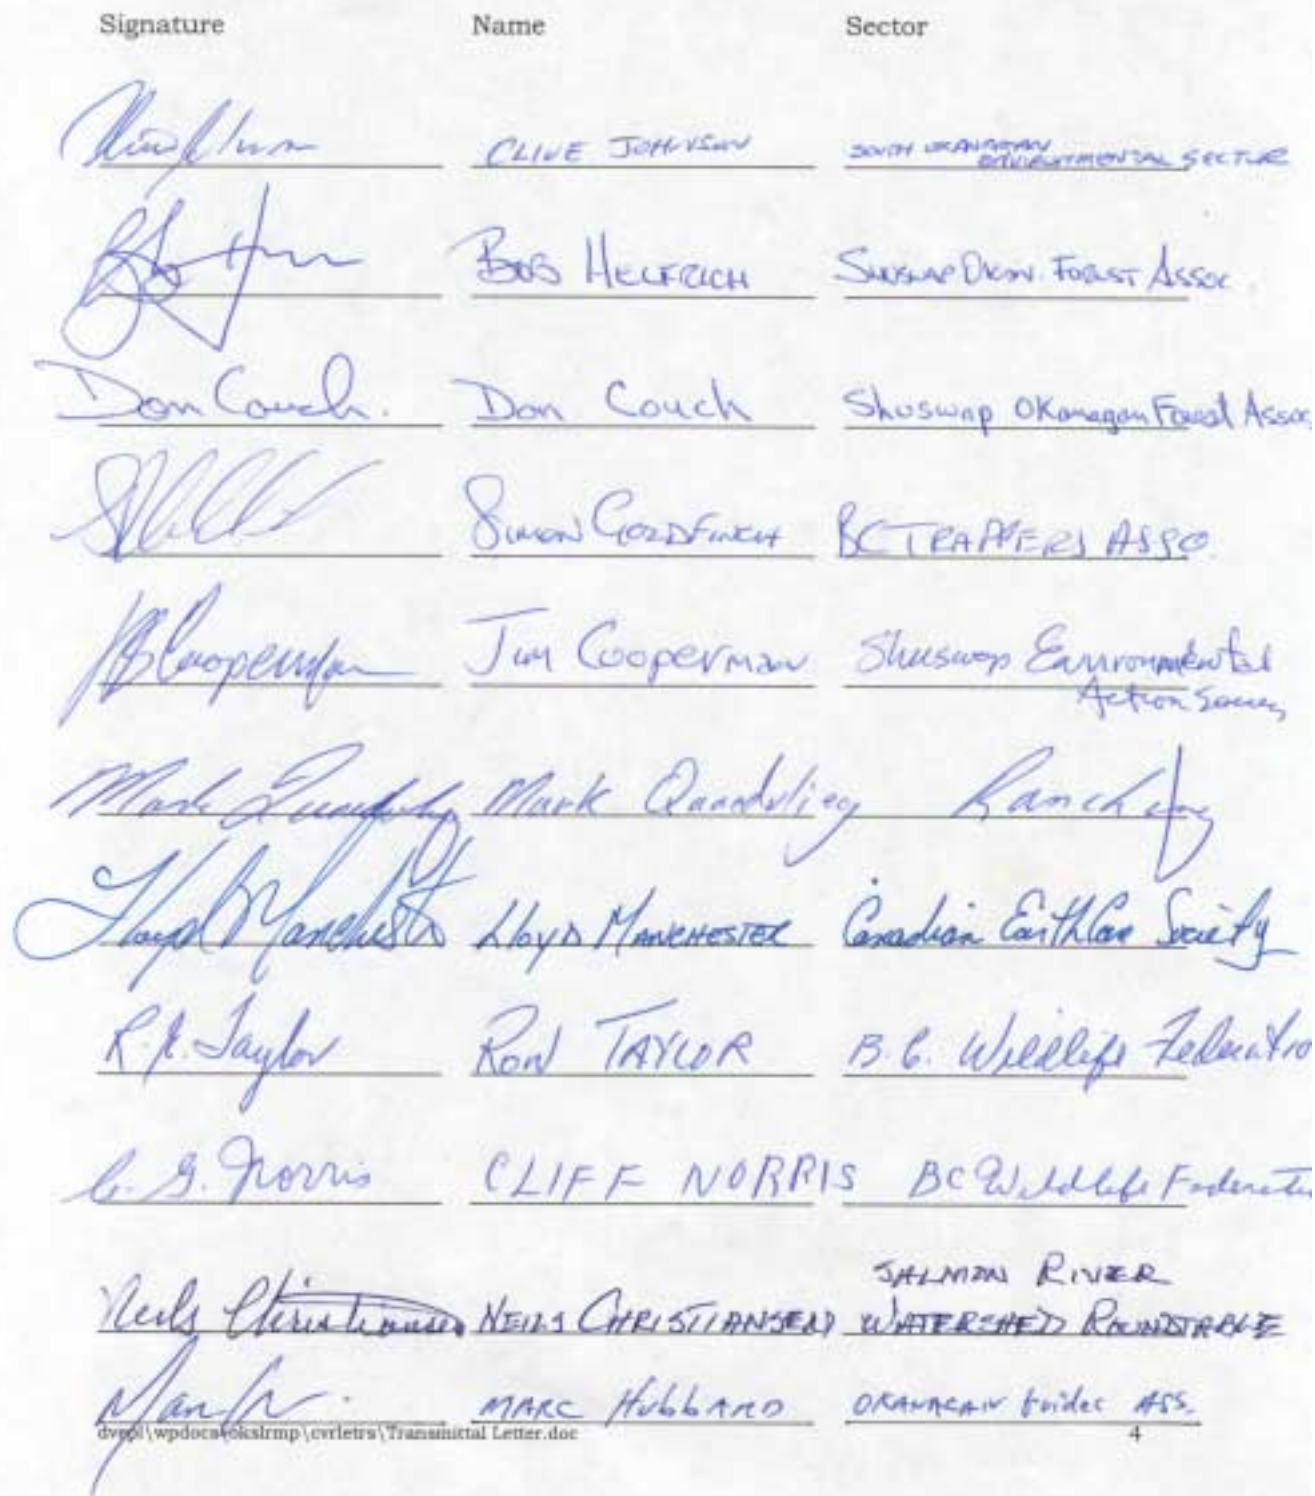 Signature Name Sector
CLIVE JOHNSON SOUTH OKANAGAN
ENVIRONMENTAL SECTOR
BOB HELFRICH SHUSWAP OKAN. FOREST ASSOC.
Don Couch. Don Couch Shuswap OKanagan Forest Assoc.
SIMON GOLDFINCH BC TRAPPERS ASSO.
JB Cooperman Jim Cooperman Shuswap Environmental
Action Society
Mark Mark Ranching
Lloyd Manchester LLOYD MANCHESTER Canadian EarthCare Society
R. Taylor RON TAYLOR B.C. Wildlife Federatio
C. G. Norris CLIFF NORRIS BC Wildlife Federatio
SALMON RIVER
Neils Christiansen NEILS CHRISTIANSEN WATERSHED ROUNDTABLE
MARC HUBBARD OKANAGAN Guides ASS.
dvepl\wpdocs\okslrmp\cvrletrs\Transmittal Letter.doc 4